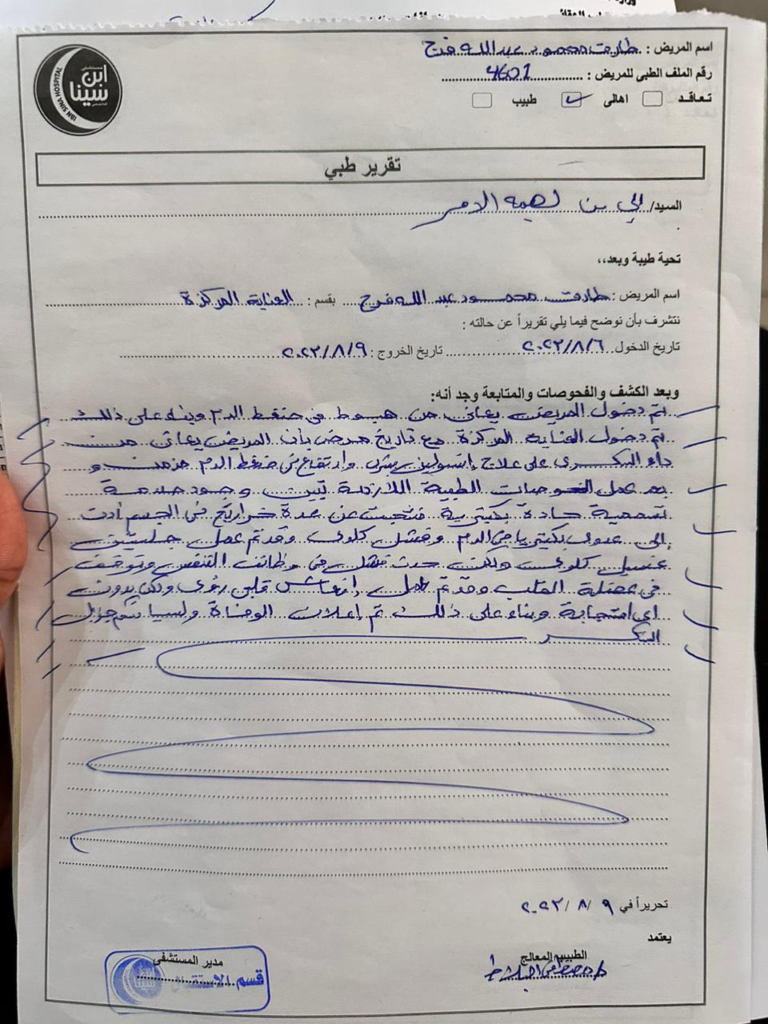 اسم المريض : طارق محمود عبد الله فرج
رقم الملف الطبى للمريض : 4601
تعاقد اهالى طبيب
ابن سينا
IBN SINA HOSPITAL
تقرير طبي
السيد/ إلي من يهمه الامر
تحية طيبة وبعد،،
اسم المريض : طارق محمود عبد الله فرج بقسم : العناية المركزة
نتشرف بأن نوضح فيما يلي تقريراً عن حالته :
تاريخ الدخول ٢٠٢٢/٨/٦ تاريخ الخروج : ٢٠٢٢/٨/٩
وبعد الكشف والفحوصات والمتابعة وجد أنه:
تم دخول المريض يعانى من هبوط فى ضغط الدم وبناء على ذلك
تم دخول العناية المركزة مع تاريخ مرضى بأن المريض يعانى من
داء السكرى على علاج إنسولين وارتفاع فى ضغط الدم مزمن و
بعد عمل الفحوصات الطبية اللازمة تبين وجود صدمة
تسممية حادة بكتيرية فنتجت عن عدة خراريج فى الجسم أدت
إلى عدوى بكتيريا فى الدم وفشل كلوى وقد تم عمل جلستين
غسيل كلوى ولكن حدث فشل فى وظائف التنفس وتوقف
فى عضلة القلب وقد تم عمل إنعاش قلبى رئوى ولكن بدون
اى استجابة وبناء على ذلك تم إعلان الوفاة
تحريراً في ٩ /٨ /٢٠٢٢
يعتمد
الطبيب المعالج
مدير المستشفى
قسم الاستقبال